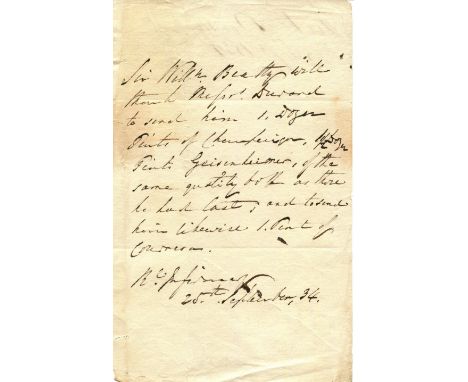 Sir Willm. Beatty "will"
thank Messrs. Durand
to send him 1. Dozen
Pints of Champaign, 1/2 Dozen
Pints Geisenheimer, of the
same quality both as those
he had last; and to send
him likewise 1. Pint of
Curracoa.
Rl. Infirmary
25th September, 34.